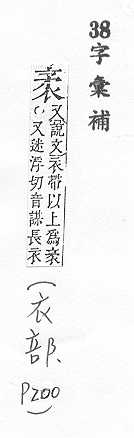 38字彙補
又說文衣帶以上爲袤
又迷浮切音謀長衣
(衣部、
P200)